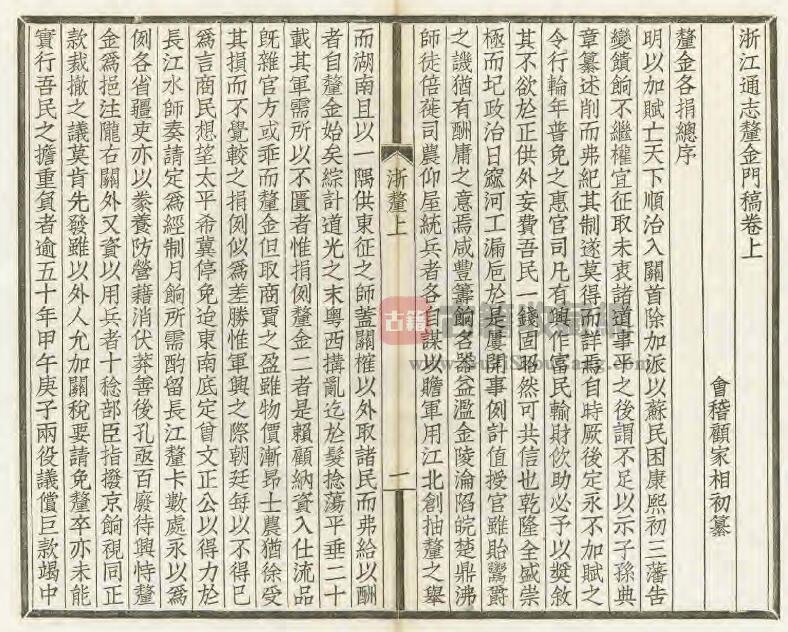 浙江通志釐金門稿卷上
會稽顧家相初纂
釐金各捐總序
明以加賦亡天下順治入關首除加派以蘇民困康熙初三藩告
變饋餉不繼權宜征取未衷諸道事平之後謂不足以示子孫典
章纂述削而弗紀其制遂莫得而詳焉自時厥後定永不加賦之
令行輪年普免之惠官司凡有興作富民輸財佽助必予以獎敘
其不欲於正供外妄費吾民一錢固昭然可共信也乾隆全盛崇
極而圮政治日窳河工漏巵於是屢開事例計值授官雖貽鬻爵
之譏猶有酬庸之意焉咸豐籌餉名器益濫金陵淪陷皖楚鼎沸
師徒倍蓰司農仰屋統兵者各自謀以贍軍用江北創抽釐之舉
浙釐上
一
而湖南且以一隅供東征之師蓋關榷以外取諸民而弗給以酬
者自釐金始矣綜計道光之末粵西搆亂迄於髮捻蕩平垂二十
載其軍需所以不匱者惟捐例釐金二者是賴顧納資入仕流品
旣雜官方或乖而釐金但取商賈之盈雖物價漸昂士農猶徐受
其損而不覺較之捐例似爲差勝惟軍興之際朝廷每以不得已
爲言商民想望太平希冀停免迨東南底定曾文正公以得力於
長江水師奏請定爲經制月餉所需酌留長江釐卡數處永以爲
例各省疆吏亦以豢養防營藉消伏莽善後孔亟百廢待興恃釐
金爲挹注隴右關外又資以用兵者十稔部臣指撥京餉視同正
款裁撤之議莫肯先發雖以外人允加關稅要請免釐卒亦未能
實行吾民之擔重負者逾五十年甲午庚子兩役議償巨款竭中
古籍